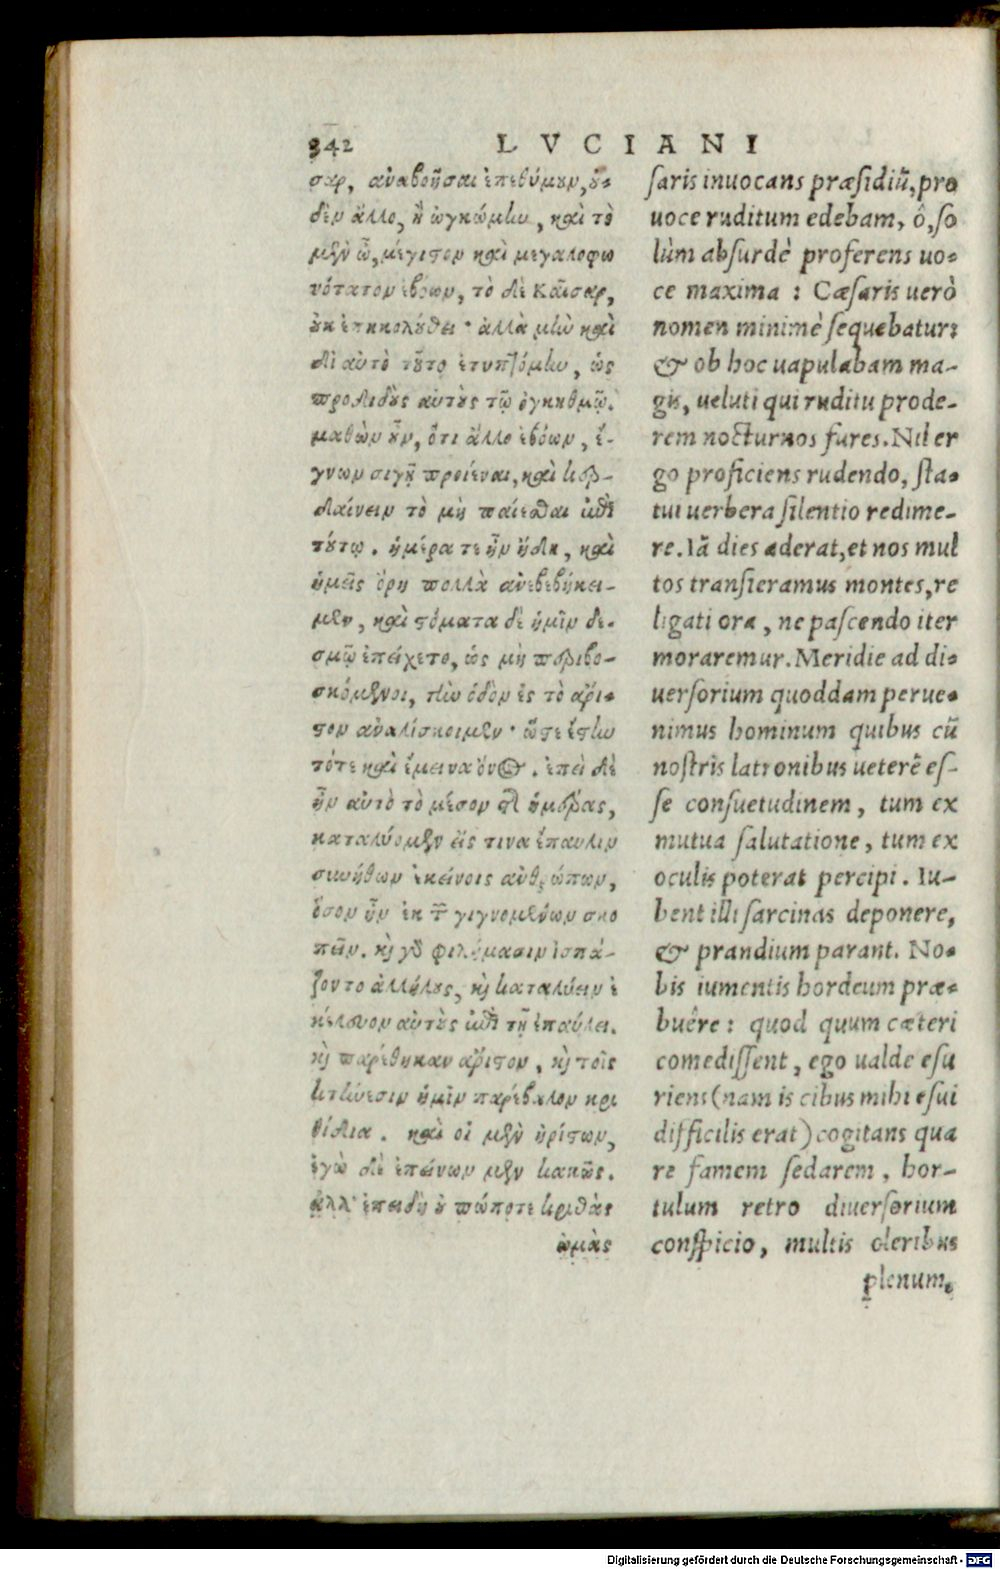 342 LVCIANI
σαρ, ἀναβοῆσαι ἐπεθύμουν, οὐ-
δὲν ἄλλο, ἢ ὠγκώμην, καὶ τὸ
μὲν ὦ, μέγιστον καὶ μεγαλοφω
νότατον ἐβόων, τὸ δὲ Καῖσαρ,
οὐκ ἐπηκολούθει· ἀλλὰ μὴν καὶ
δι αὐτὸ τοῦτο ἐτυπτόμην, ὡς
προδιδοὺς αὐτοὺς τῷ ὀγκηθμῷ.
μαθὼν οὖν, ὅτι ἄλλο ἐβόων, ἔ-
γνων σιγῇ προϊέναι, καὶ κερ-
δαίνειν τὸ μὴ παίεσθαι ἐπὶ
τούτῳ. ἡμέρα τε ἦν ἤδη, καὶ
ἡμεῖς ὄρη πολλὰ ἀνεβεβήκει-
μεν, καὶ στόματα δὲ ἡμῖν δε-
σμῷ ἐπείχετο, ὡς μὴ περιβο-
σκόμενοι, τὴν ὁδὸν ἐς τὸ ἄρι-
στον ἀναλίσκοιμεν· ὥστε ἔς τὴν
τότε καὶ ἔμεινα ὄνος. ἐπεὶ δὲ
ἦν αὐτὸ τὸ μέσον τῆς ἡμέρας,
καταλύομεν εἴς τινα ἔπαυλιν
συνήθων ἐκείνοις ἀνθρώπων,
ὅσον ἦν ἐκ τῶν γιγνομένων σκο
πεῖν. καὶ γὰρ φιλήμασιν ἠσπά-
ζοντο ἀλλήλους, καὶ καταλύειν ἐ
κέλευον αὐτοὺς ἐπὶ τῇ ἐπαύλει.
καὶ παρέθηκαν ἄριστον, καὶ τοῖς
κτήνεσιν ἡμῖν παρέβαλον κρι
θίδια. καὶ οἱ μὲν ἠρίστων,
ἐγὼ δὲ ἐπείνων μὲν κακῶς.
ἀλλ' ἐπειδὴ οὐ πώποτε κριθὰς
ὠμὰς
saris inuocans præsidiũ, pro
uoce ruditum edebam, ô, so
lùm absurdè proferens uo-
ce maxima: Cæsaris uerò
nomen minimè sequebatur:
& ob hoc uapulabam ma-
gis, ueluti qui ruditu prode-
rem nocturnos fures. Nil er
go proficiens rudendo, sta-
tui uerbera silentio redime-
re. Iã dies aderat, et nos mul
tos transieramus montes, re
ligati ora, ne pascendo iter
moraremur. Meridie ad di-
uersorium quoddam perue-
nimus hominum quibus cũ
nostris latronibus ueterẽ es-
se consuetudinem, tum ex
mutua salutatione, tum ex
oculis poterat percipi. Iu-
bent illi sarcinas deponere,
& prandium parant. No-
bis iumentis hordeum præ-
buêre: quod quum cæteri
comedissent, ego ualde esu
riens (nam is cibus mihi esui
difficilis erat) cogitans qua
re famem sedarem, hor-
tulum retro diuersorium
conspicio, multis oleribus
plenum.
Digitalisierung gefördert durch die Deutsche Forschungsgemeinschaft - DFG